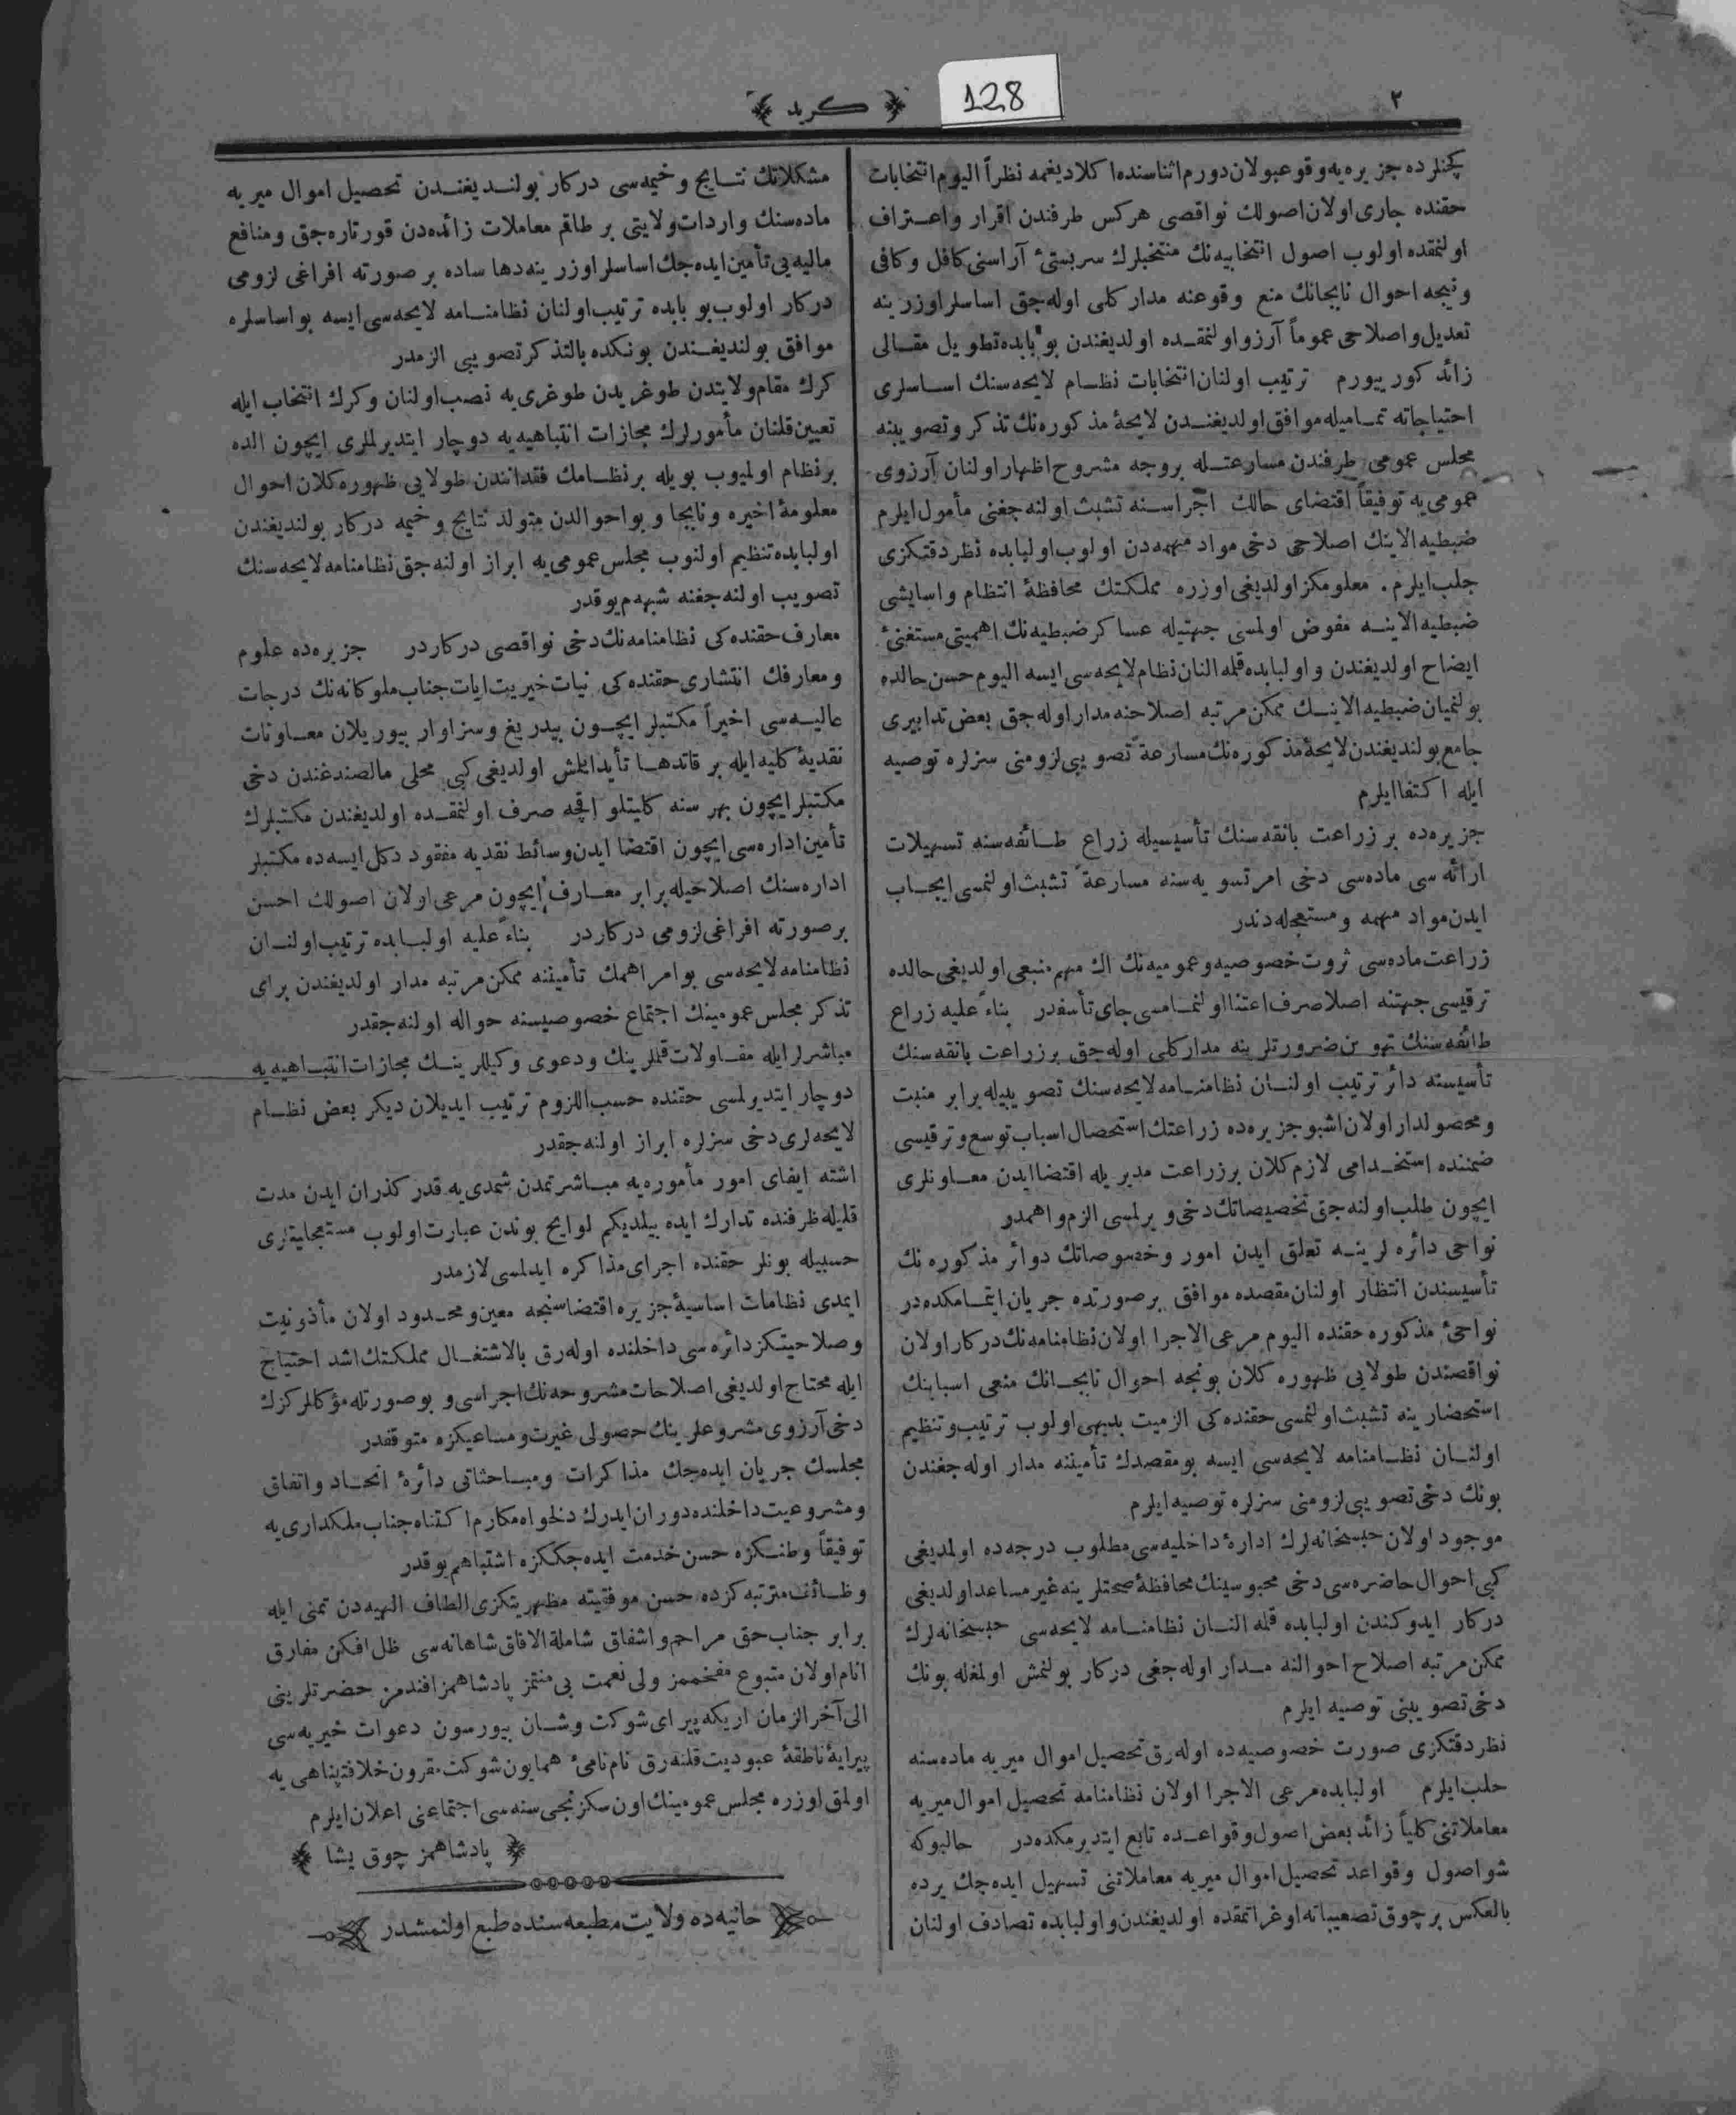 ٢
128
﴿ كريد ﴾
كچنلرده جزيره‌يه وقوعبولان دورم اثناسنده اكلاديغمه نظراً اليوم انتخابات
حقنده جارى اولان اصولك نواقصى هركس طرفندن اقرار واعتراف
اولنمقده اولوب اصول انتخابيه‌نك منتخبلرك سربستئ آراسنى كافل وكافى
ونيجه احوال نابجانك منع وقوعنه مدار كلى اوله‌جق اساسلر اوزرينه
تعديل واصلاحى عموماً آرزو اولنمقده اولديغندن بو بابده تطويل مقالى
زائد كورييورم ترتيب اولنان انتخابات نظام لايحه‌سنك اساسلرى
احتياجاته تماميله موافق اولديغندن لايحهٔ مذكوره‌نك تذكر وتصويبنه
مجلس عمومى طرفندن مسارعتله بروجه مشروح اظهار اولنان آرزوى
عمومى‌يه توفيقاً اقتضاى حالك اجراسنه تشبث اولنه‌جغنى مأمول ايلرم
ضبطيه الاينك اصلاحى دخى مواد مهمه‌دن اولوب اولبابده نظر دقتكزى
جلب ايلرم. معلومكز اولديغى اوزره مملكتك محافظهٔ انتظام واسايشى
ضبطيه الاينه مفوض اولمسى جهتيله عساكر ضبطيه‌نك اهميتى مستغنئ
ايضاح اولديغندن واولبابده قلمه النان نظام لايحه‌سى ايسه اليوم حسن حالده
بولنميان ضبطيه الاينك ممكن مرتبه اصلاحنه مدار اوله‌جق بعض تدابيرى
جامع بولنديغندن لايحهٔ مذكوره‌نك مسارعةً تصويبى لزومنى سزلره توصيه
ايله اكتفا ايلرم
جزيره‌ده بر زراعت بانقه‌سنك تأسيسيله زراع طائفه‌سنه تسهيلات
ارائه‌سى ماده‌سى دخى امر تسويه‌سنه مسارعةً تشبث اولنمسى ايجاب
ايدن مواد مهمه ومستعجله‌دندر
زراعت ماده‌سى ثروت خصوصيه وعموميه‌نك اك مهم منبعى اولديغى حالده
ترقيسى جهتنه اصلا صرف اعتنا اولنمامسى جاى تأسفدر بناءً عليه زراع
طائفه‌سنك تهوين ضرورتلرينه مدار كلى اوله‌جق بر زراعت بانقه‌سنك
تأسيسنه دائر ترتيب اولنان نظامنامه لايحه‌سنك تصويبيله برابر منبت
ومحصولدار اولان اشبو جزيره‌ده زراعتك استحصال اسباب توسع وترقيسى
ضمننده استخدامى لازمكلان بر زراعت مديريله اقتضا ايدن معاونلرى
ايچون طلب اولنه‌جق تخصيصاتك دخى ويرلمسى الزم واهمدر
نواحى دائره‌لرينه تعلق ايدن امور وخصوصاتك دوائر مذكوره‌نك
تأسيسندن انتظار اولنان مقصده موافق بر صورتده جريان ايتمامكده‌در
نواحئ مذكوره حقنده اليوم مرعى الاجرا اولان نظامنامه‌نك دركار اولان
نواقصندن طولايى ظهوره كلان بونجه احوال نابجانك منعى اسبابنك
استحضارينه تشبث اولنمسى حقنده‌كى الزميت بديهى اولوب ترتيب وتنظيم
اولنان نظامنامه لايحه‌سى ايسه بو مقصدك تأميننه مدار اوله‌جغندن
بونك دخى تصويبى لزومنى سزلره توصيه ايلرم
موجود اولان حبسخانه‌لرك ادارهٔ داخليه‌سى مطلوب درجه‌ده اولمديغى
كبى احوال حاضره‌سى دخى محبوسينك محافظهٔ صحتلرينه غير مساعد اولديغى
دركار ايدوكندن اولبابده قلمه النان نظامنامه لايحه‌سى حبسخانه‌لرك
ممكن مرتبه اصلاح احوالنه مدار اوله‌جغى دركار بولنمش اولمغله بونك
دخى تصويبنى توصيه ايلرم
نظر دقتكزى صورت خصوصيه‌ده اوله‌رق تحصيل اموال ميريه ماده‌سنه
جلب ايلرم اولبابده مرعى الاجرا اولان نظامنامه تحصيل اموال ميريه
معاملاتنى كلياً زائد بعض اصول وقواعده تابع ايتديرمكده‌در حالبوكه
شو اصول وقواعد تحصيل اموال ميريه معاملاتنى تسهيل ايده‌جك يرده
بالعكس بر چوق تصعيباته اوغراتمقده اولديغندن واولبابده تصادف اولنان
مشكلاتك نتايج وخيمه‌سى دركار بولنديغندن تحصيل اموال ميريه
ماده‌سنك واردات ولايتى بر طاقم معاملات زائده‌دن قورتاره‌جق ومنافع
ماليه‌يى تأمين ايده‌جك اساسلر اوزرينه دها ساده بر صورته افراغى لزومى
دركار اولوب بو بابده ترتيب اولنان نظامنامه لايحه‌سى ايسه بو اساسلره
موافق بولنديغندن بونكده بالتذكر تصويبى الزمدر
كرك مقام ولايتدن طوغريدن طوغرى‌يه نصب اولنان وكرك انتخاب ايله
تعيين قلنان مأمورلرك مجازات انتباهيه‌يه دوچار ايتديرلملرى ايچون الده
بر نظام اولميوب بويله بر نظامك فقدانندن طولايى ظهوره كلان احوال
معلومهٔ اخيره ونابجا وبو احوالدن متولد نتايج وخيمه دركار بولنديغندن
اولبابده تنظيم اولنوب مجلس عمومى‌يه ابراز اولنه‌جق نظامنامه لايحه‌سنك
تصويب اولنه‌جغنه شبهه‌م يوقدر
معارف حقنده‌كى نظامنامه‌نك دخى نواقصى دركاردر جزيره‌ده علوم
ومعارفك انتشارى حقنده‌كى نيات خيريت‌ايات جناب ملوكانه‌نك درجات
عاليه‌سى اخيراً مكتبلر ايچون بيدريغ وسزاوار بيوريلان معاونات
نقديهٔ كليه ايله بر قات دها تأيد ايلمش اولديغى كبى محلى مالصندغندن دخى
مكتبلر ايچون بهر سنه كليتلو اقچه صرف اولنمقده اولديغندن مكتبلرك
تأمين اداره‌سى ايچون اقتضا ايدن وسائط نقديه مفقود دكل ايسه‌ده مكتبلر
اداره‌سنك اصلاحيله برابر معارف ايچون مرعى اولان اصولك احسن
بر صورته افراغى لزومى دركاردر بناءً عليه اولبابده ترتيب اولنان
نظامنامه لايحه‌سى بو امر اهمك تأميننه ممكن مرتبه مدار اولديغندن براى
تذكر مجلس عمومينك اجتماع خصوصيسنه حواله اولنه‌جقدر
مباشرلر ايله مقاولات قلملرينك ودعوى وكيللرينك مجازات انتباهيه‌يه
دوچار ايتديرلمسى حقنده حسب اللزوم ترتيب ايديلان ديكر بعض نظام
لايحه‌لرى دخى سزلره ابراز اولنه‌جقدر
اشته ايفاى امور مأموره‌يه مباشرتمدن شمدى‌يه قدر كذران ايدن مدت
قليله ظرفنده تدارك ايده بيلديكم لوايح بوندن عبارت اولوب مستعجليتلرى
حسبيله بونلر حقنده اجراى مذاكره ايدلمسى لازمدر
ايمدى نظامات اساسيهٔ جزيره اقتضاسنجه معين ومحدود اولان مأذونيت
وصلاحيتكز دائره‌سى داخلنده اوله‌رق بالاشتغال مملكتك اشد احتياج
ايله محتاج اولديغى اصلاحات مشروحه‌نك اجراسى وبو صورتله مؤكللركزك
دخى آرزوى مشروعلرينك حصولى غيرت ومساعيكزه متوقفدر
مجلسك جريان ايده‌جك مذاكرات ومباحثاتى دائرهٔ اتحاد واتفاق
ومشروعيت داخلنده دوران ايدرك دلخواه مكارم اكتناه جناب ملكدارى‌يه
توفيقاً وطنكزه حسن خدمت ايده‌جككزه اشتباهم يوقدر
وظائف مترتبه‌كزده حسن موفقيته مظهريتكزى الطاف الهيه‌دن تمنى ايله
برابر جناب حق مراحم واشفاق شاملة الافاق شاهانه‌سى ظل افكن مفارق
انام اولان متبوع مفخممز ولى نعمت بى منتمز پادشاهمز افندمز حضرتلرينى
الى آخر الزمان اريكه پيراى شوكت وشان بيورسون دعوات خيريه‌سى
پيرايهٔ ناطقهٔ عبوديت قلنه‌رق نام نامئ همايون شوكتمقرون خلافتپناهى‌يه
اولمق اوزره مجلس عمومينك اون سكزنجى سنه‌سى اجتماعنى اعلان ايلرم
﴿ پادشاهمز چوق يشا ﴾
حانيه‌ده ولايت مطبعه‌سنده طبع اولنمشدر